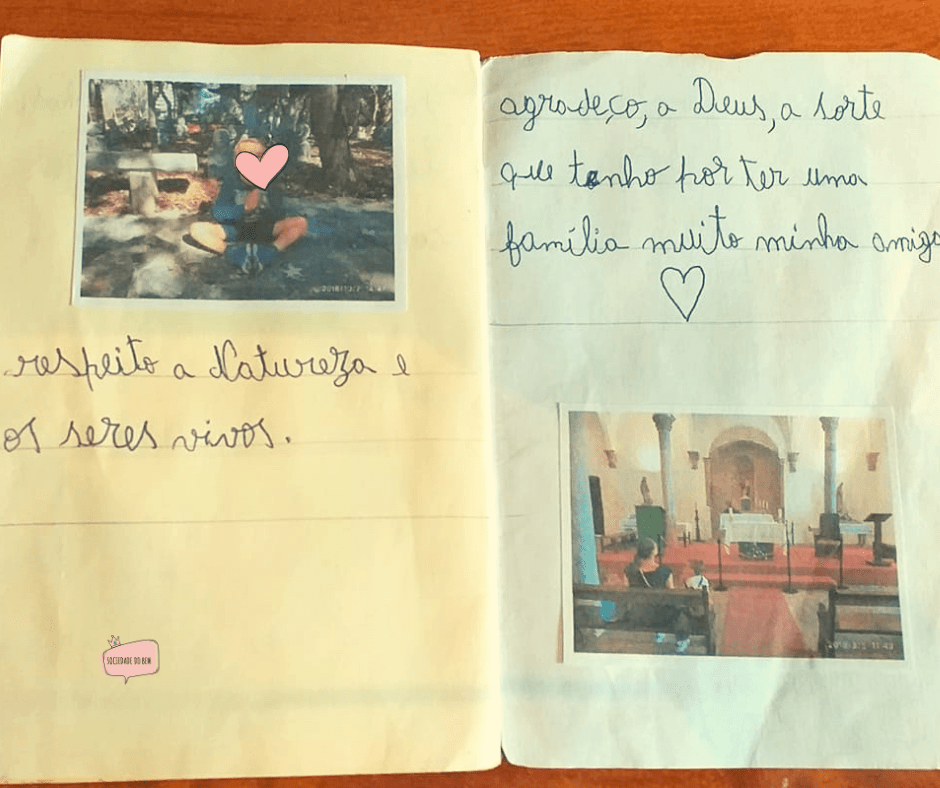 respeito a Natureza e
os seres vivos.
SOCIEDADE DO BEM
agradeço, a Deus, a sorte
que tenho por ter uma
família muito minha amiga